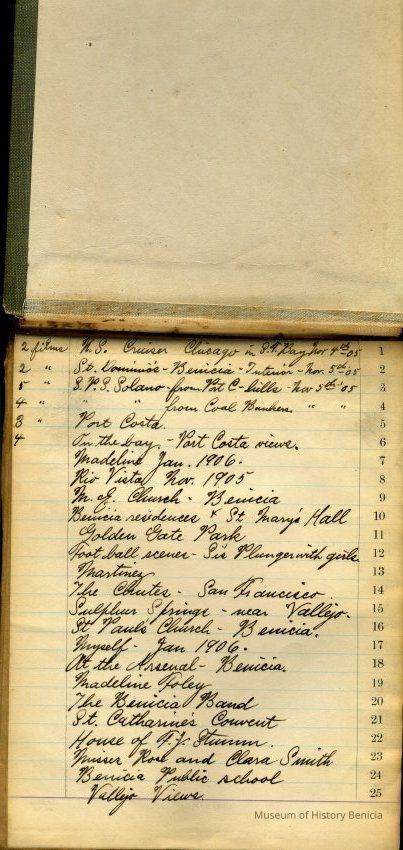 2 films U.S. Cruiser Chicago in S.F. Bay Nov 4th-05 1
2 " St. Dominic's - Benicia - Interior - Nov. 5th-05 2
5 " S.P.S. Solano - from Port C - hills - Nov 5th '05 3
4 " " " from Coal Bunkers. " " 4
3 " Port Costa. 5
4 On the bay - Port Costa views. 6
Madeline Jan. 1906. 7
Rio Vista, Nov. 1905 8
M.E. Church - Benicia 9
Benicia residences & St Mary's Hall 10
Golden Gate Park 11
Foot-ball scenes - Si's Plunger with girls 12
Martinez 13
The Chutes - San Francisco. 14
Sulphur Springs - near Vallejo. 15
St Pauls Church - Benicia. 16
Myself - Jan 1906. 17
At the Arsenal - Benicia. 18
Madeline Foley 19
The Benicia Band 20
St. Catharine's Convent 21
House of F.J. Stumm. 22
Misses Rose and Clara Smith 23
Benicia Public school 24
Vallejo Views. 25
Museum of History Benicia